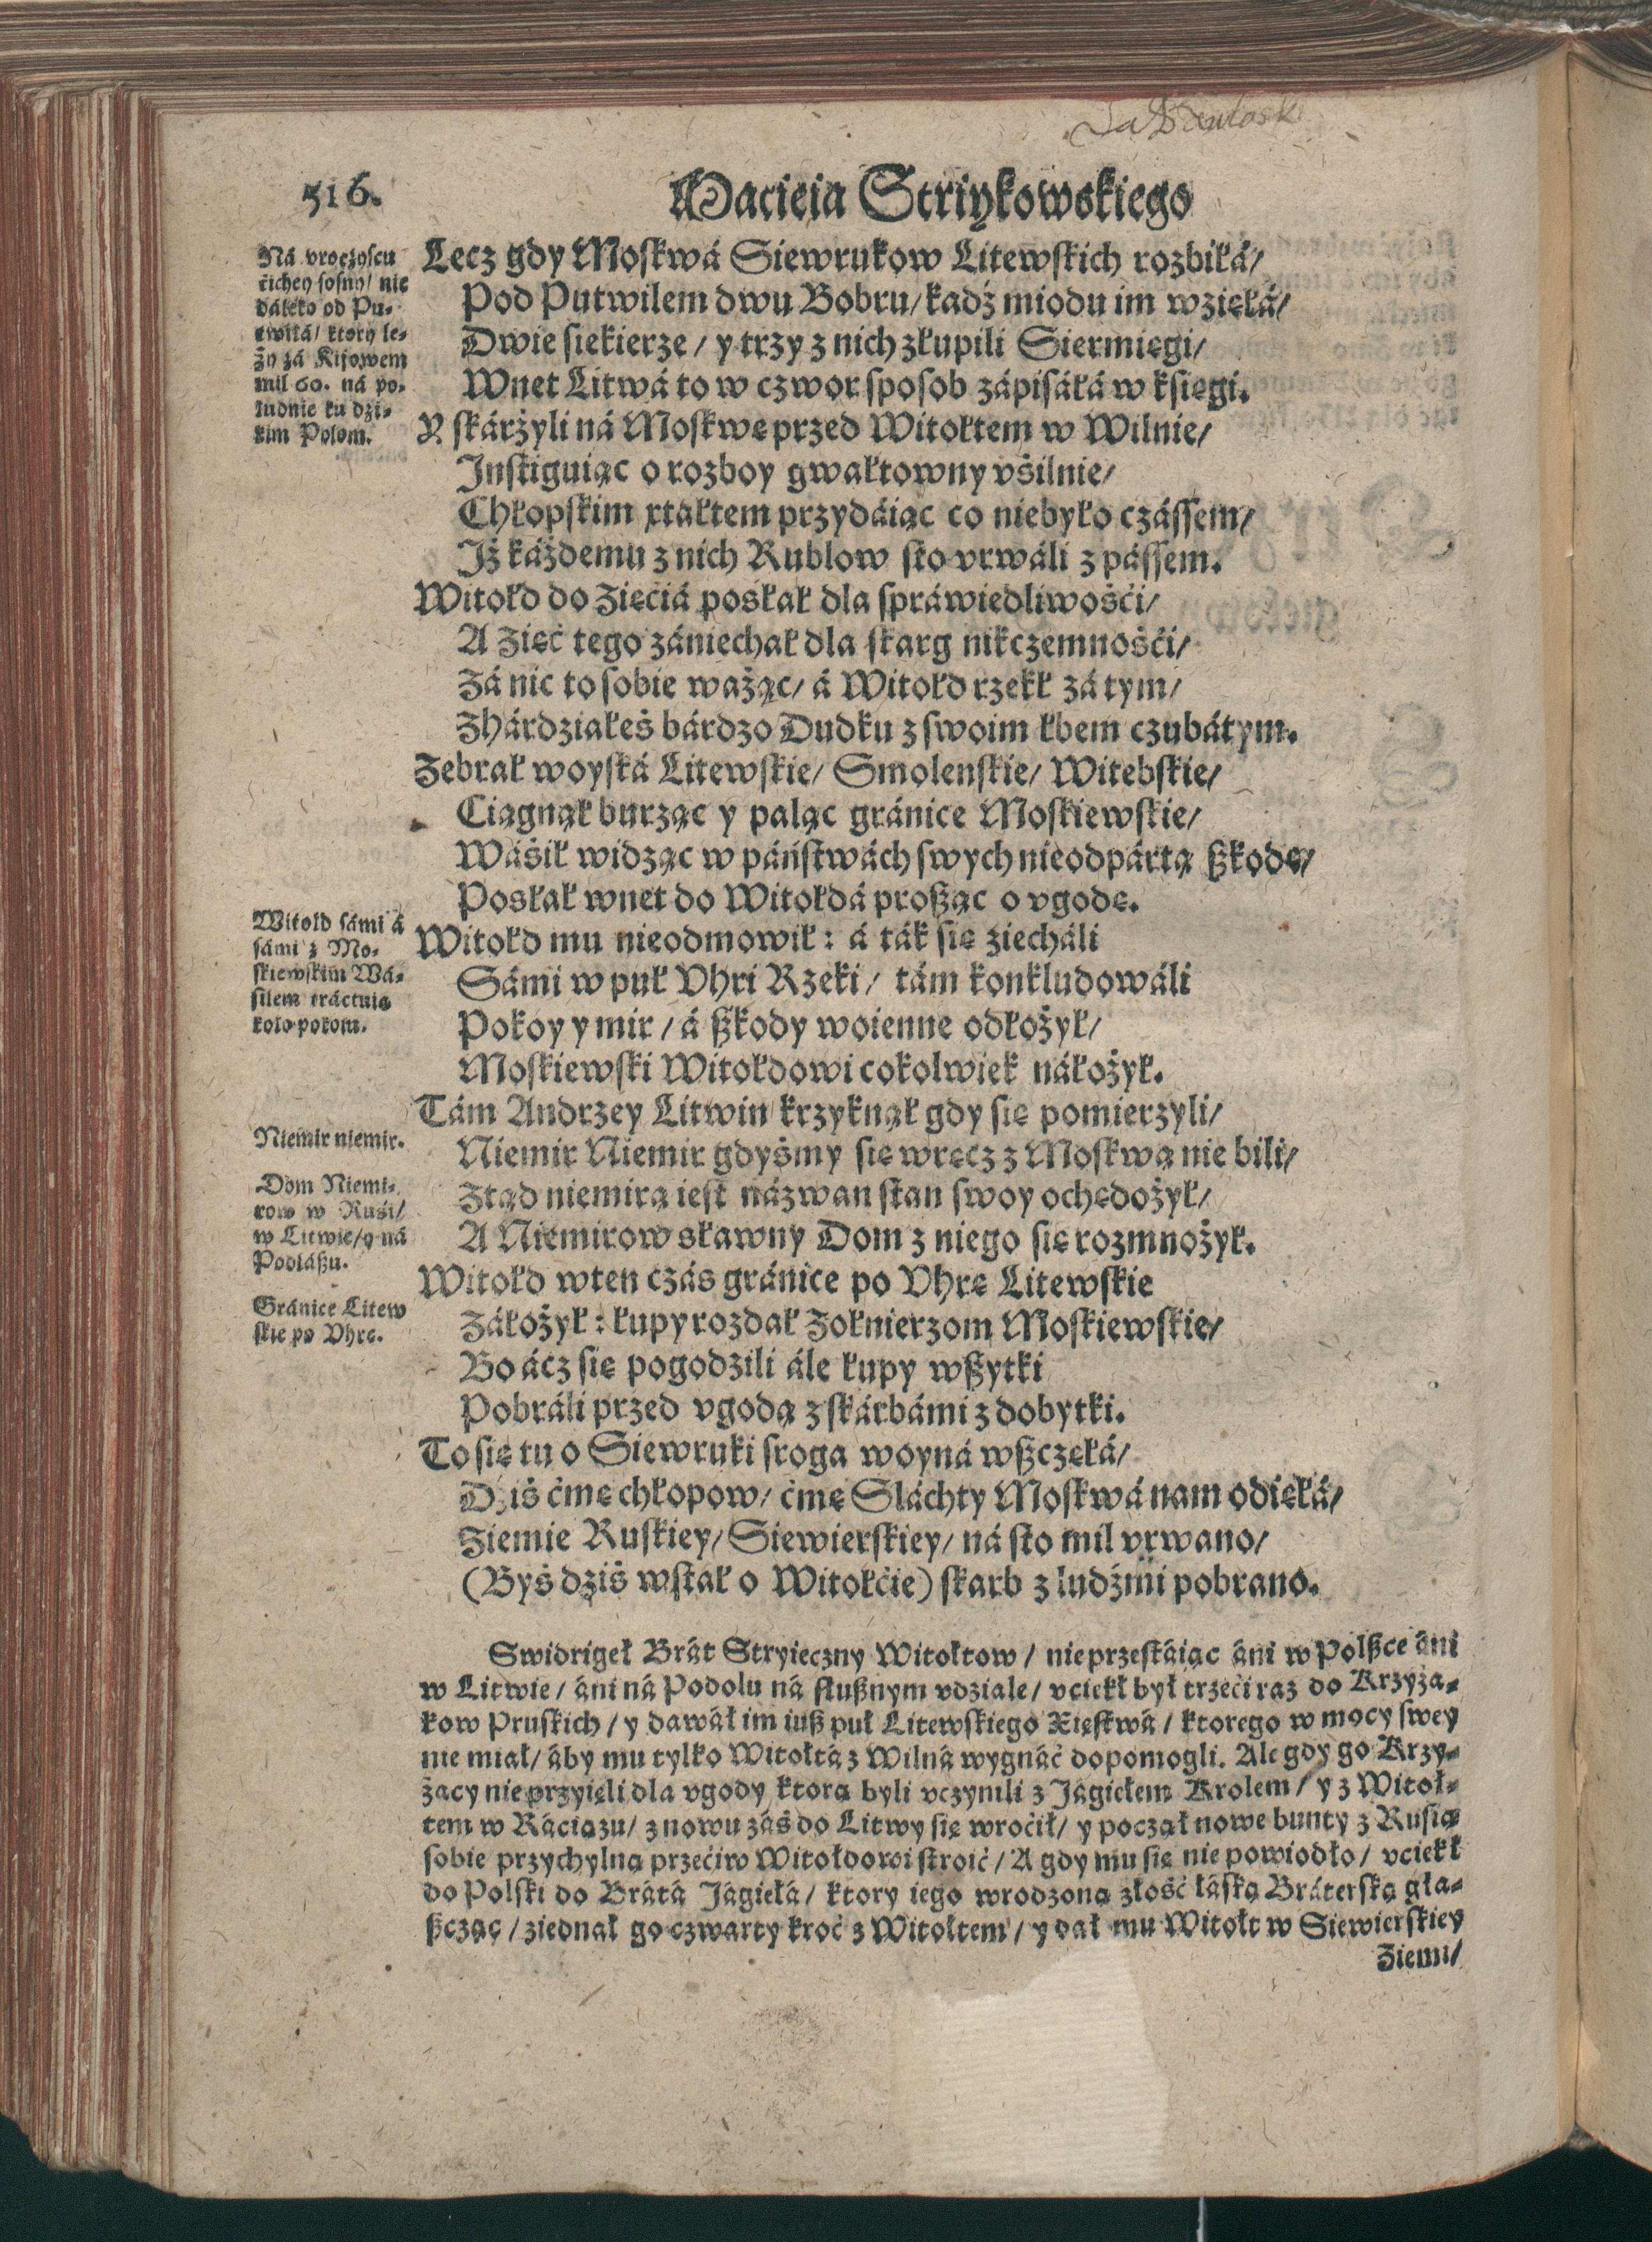 516.
Macieia Striykowskiego
Ná vroczyscu
cichey sosny/ nie
dáleko od Pu-
twilá/ ktory le-
ży zá Kijowem
mil 60. ná po-
ludnie ku dzi-
kim Polom.
Lecz gdy Moskwá Siewrukow Litewskich rozbiłá/
Pod Putwilem dwu Bobru/ kadź miodu im wzięłá/
Dwie siekierze/ y trzy z nich złupili Siermięgi/
Wnet Litwá to w czwor sposob zápisáłá w księgi.
Y skárżyli ná Moskwę przed Witołtem w Wilnie/
Instiguiąc o rozboy gwałtowny vśilnie/
Chłopskim xtałtem przydáiąc co niebyło czássem/
Iż káżdemu z nich Rublow sto vrwáli z pássem.
Witołd do Zięciá posłał dla spráwiedliwośći/
A Zięć tego zániechał dla skarg nikczemnośći/
Zá nic to sobie ważąc/ á Witołd rzekł zá tym/
Zhárdziałeś bárdzo Dudku z swoim łbem czubátym.
Zebrał woyská Litewskie/ Smolenskie/ Witebskie/
Ciągnął burząc y paląc gránice Moskiewskie/
Wáśil widząc w páństwách swych nieodpártą ßkodę/
Posłał wnet do Witołdá proßąc o vgodę.
Witold sámi á
sámi z Mo-
skiewskim Wá-
silem tráctuię
koło pokoiu.
Witołd mu nieodmowił: á ták się ziecháli
Sámi w puł Vhri Rzeki/ tám konkludowáli
Pokoy y mir/ á ßkody woienne odłożył/
Moskiewski Witołdowi cokolwiek náłożył.
Tám Andrzey Litwin krzyknął gdy się pomierzyli/
Niemir niemir.
Niemir Niemir gdyśmy się wręcz z Moskwą nie bili/
Dom Niemi-
row w Ruśi/
w Litwie/ y ná
Podláßu.
Ztąd niemirą iest názwan stan swoy ochędożył/
A Niemirow sławny Dom z niego się rozmnożył.
Witołd wten czás gránice po Vhrę Litewskie
Gránice Litew
skie po Vhrę.
Záłożył: łupy rozdał Żołnierzom Moskiewskie/
Bo ácz się pogodzili ále łupy wßytki
Pobráli przed vgodą z skárbámi z dobytki.
To się tu o Siewruki sroga woyná wßczęłá/
Dziś ćmę chłopow/ ćmę Sláchty Moskwá nam odięłá/
Ziemie Ruskiey/ Siewierskiey/ ná sto mil vrwano/
(Byś dziś wstał o Witołćie) skarb z ludźmi pobrano.
Swidrigeł Brát Stryieczny Witołtow/ nieprzestáiąc áni w Polßce áni
w Litwie/ áni ná Podolu ná słußnym vdziale/ vciekł był trzeći raz do Krzyża-
kow Pruskich/ y dawáł im iuß puł Litewskiego Xięstwá/ ktorego w mocy swey
nie miał/ áby mu tylko Witołtá z Wilná wygnáć dopomogli. Ale gdy go Krzy-
żacy nie przyięli dla vgody ktorą byli vczynili z Jágiełem Krolem/ y z Witoł-
tem w Ráciązu/ znowu záś do Litwy się wroćił/ y począł nowe bunty z Rusią
sobie przychylną przećiw Witołdowi stroić/ A gdy mu się nie powiodło/ vciekł
do Polski do Brátá Jágiełá/ ktory iego wrodzoną złość łáską Bráterską gła-
ßcząc/ ziednał go czwarty kroć z Witołtem/ y dał mu Witołt w Siewierskiey
Ziemi/